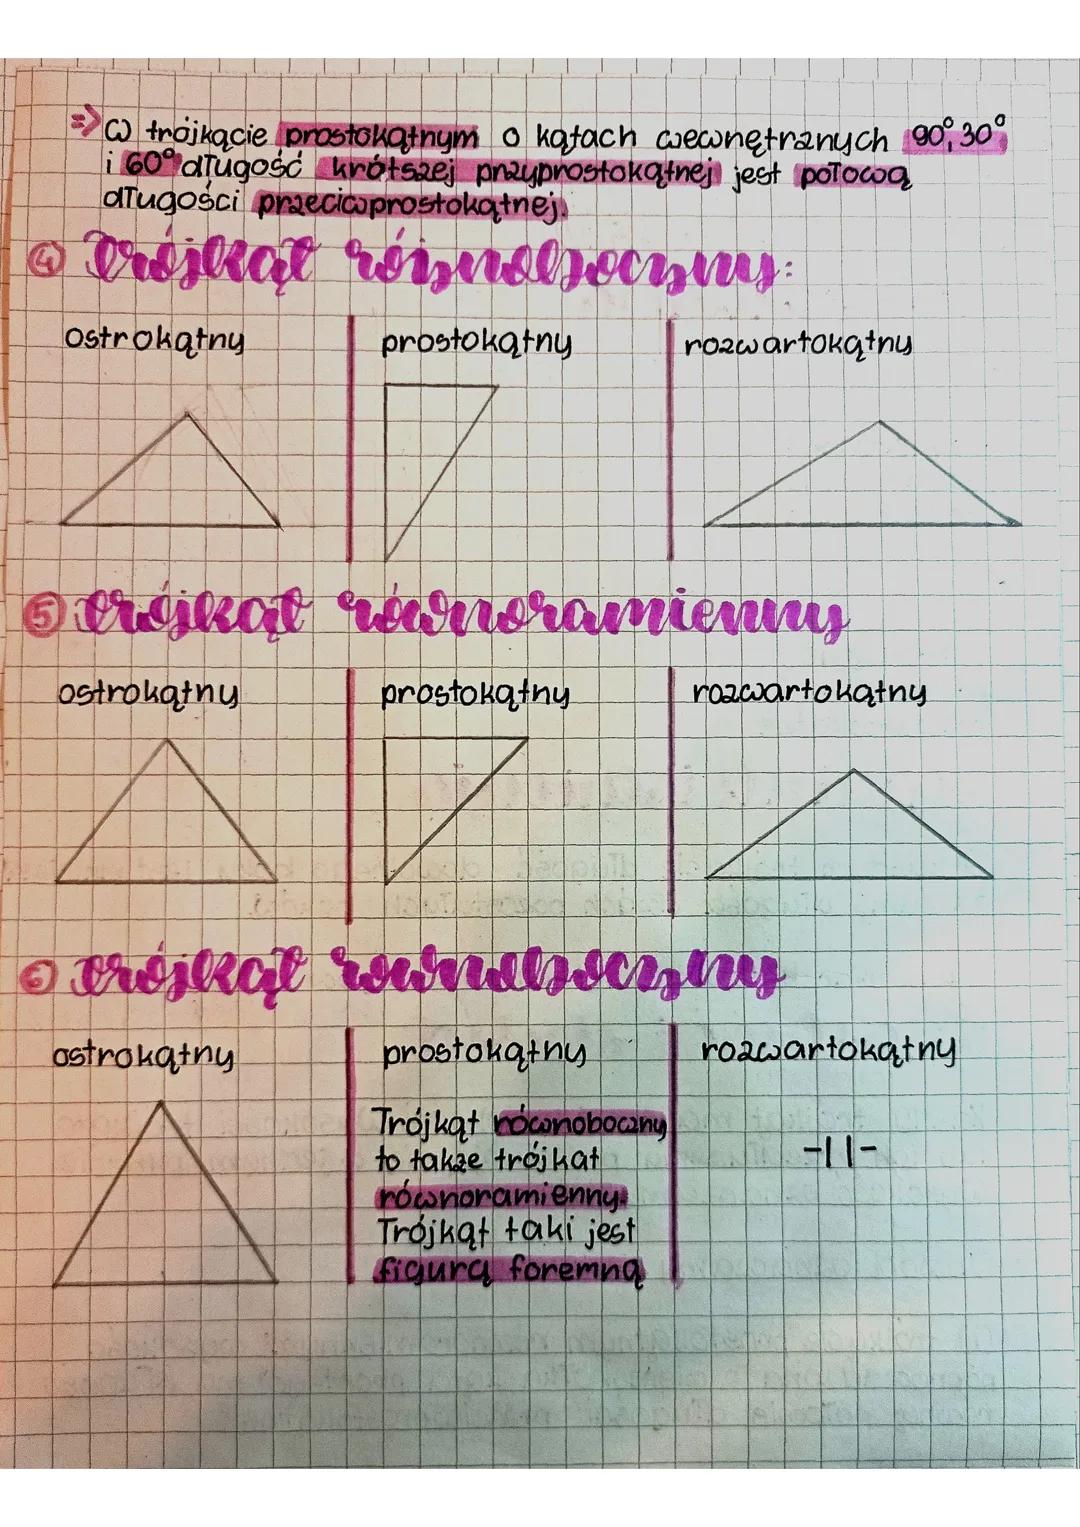 => W trójkącie prostokątnym o kątach wewnętrznych 90°, 30°
i 60° długość krótszej przyprostokątnej jest połową
długości przeciwprostokątnej.
④ trójkąt różnoboczny:
ostrokątny prostokątny rozwartokątny
⑤ trójkąt równoramienny
ostrokątny prostokątny rozwartokątny
⑥ trójkąt równoboczny
ostrokątny prostokątny rozwartokątny
Trójkąt równoboczny
to także trójkąt
równoramienny.
Trójkąt taki jest
figurą foremną
-||-